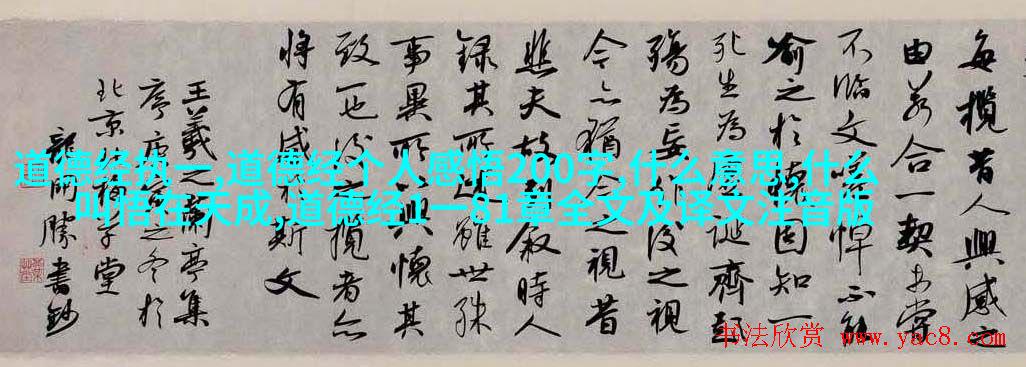 每攬昔人興感之
由若合一契未嘗
不臨文嗟悼不能
喻之於懷固知一
死生為虛誕齊彭
殤為妄作後之視
今亦猶今之視昔
悲夫故列叙時人
錄其所述雖世殊
事異所以興懷其
致一也後之攬者亦
將有感於斯文
王羲之蘭亭集
序庚寅之冬於
北京子堂
龍開勝書鈔
道德经执一,道德经个人感悟200字,什么意思,什么
叫悟在天成,道德经1一81章全文及译文注音版
书法欣赏
www.yac8.com